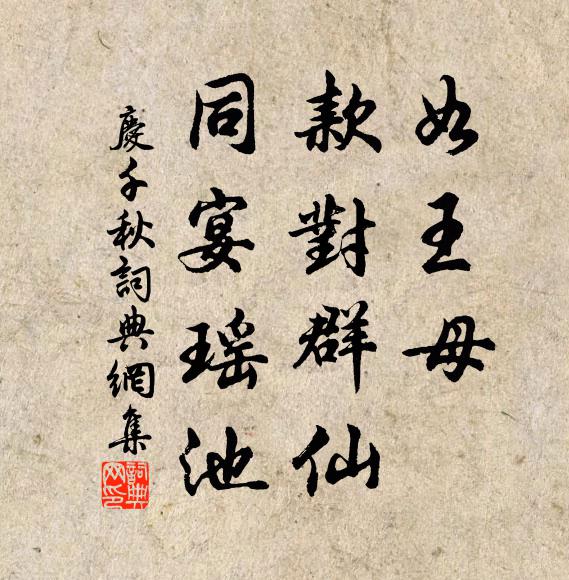 如王母
款對群仙
同宴瑤池
慶千秋詞典網集
詞典
网印